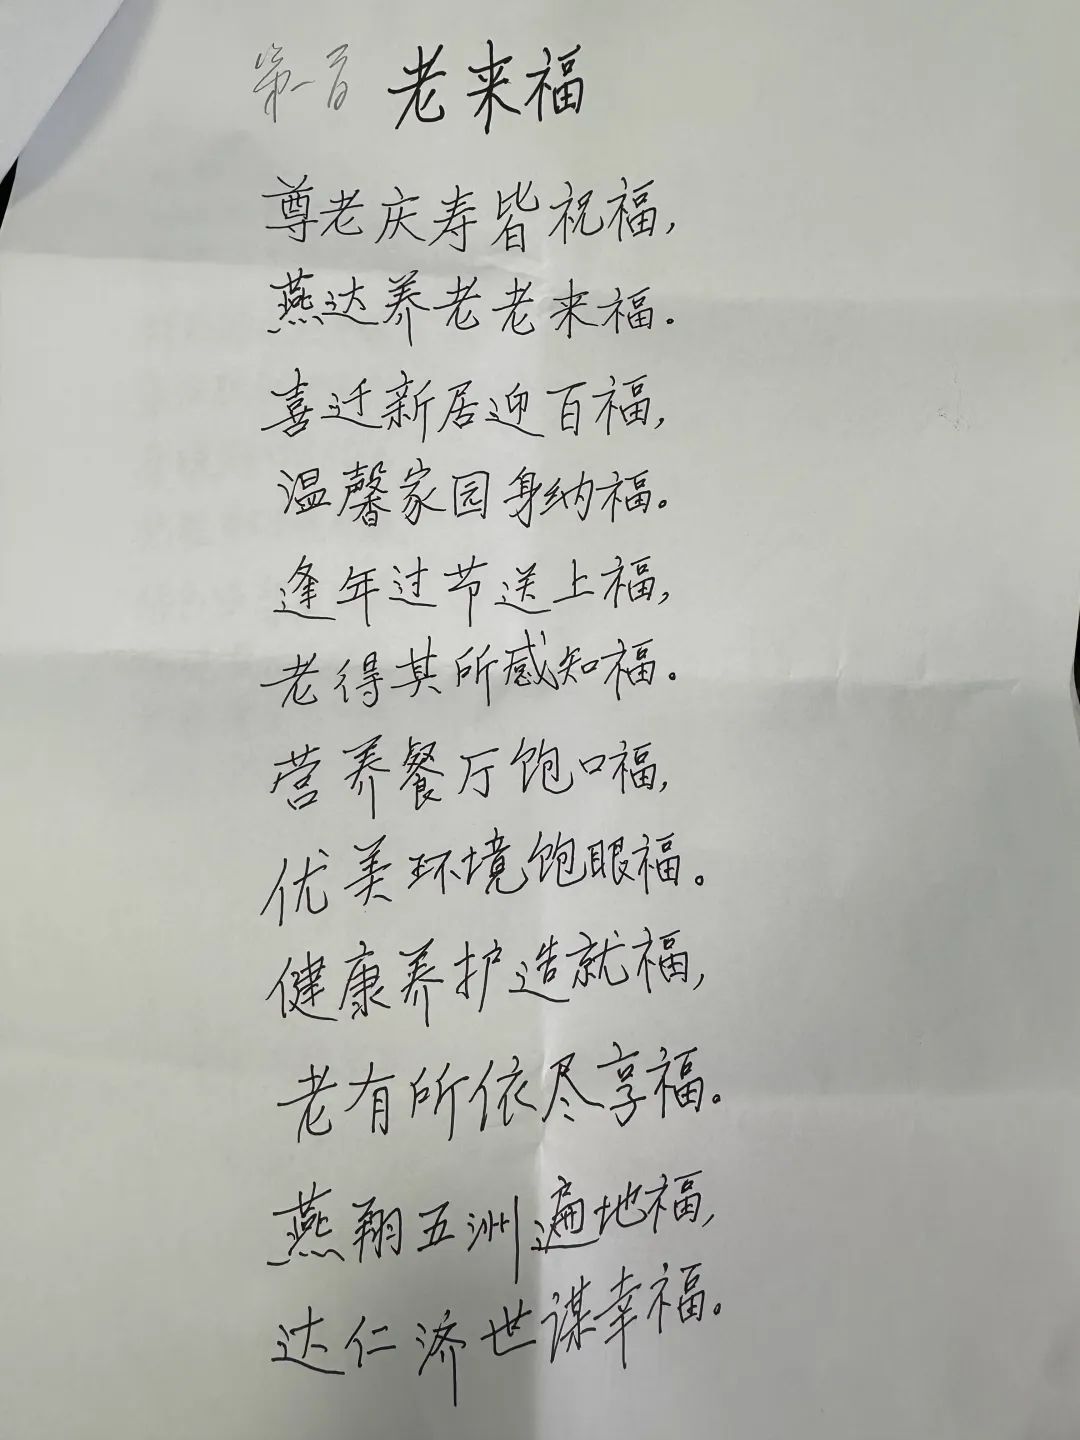 第一首 老来福
尊老庆寿皆祝福，
燕达养老老来福。
喜迁新居迎百福，
温馨家园身纳福。
逢年过节送上福，
老得其所感知福。
营养餐厅饱口福，
优美环境饱眼福。
健康养护造就福，
老有所依尽享福。
燕翔五洲遍地福，
达仁济世谋幸福。